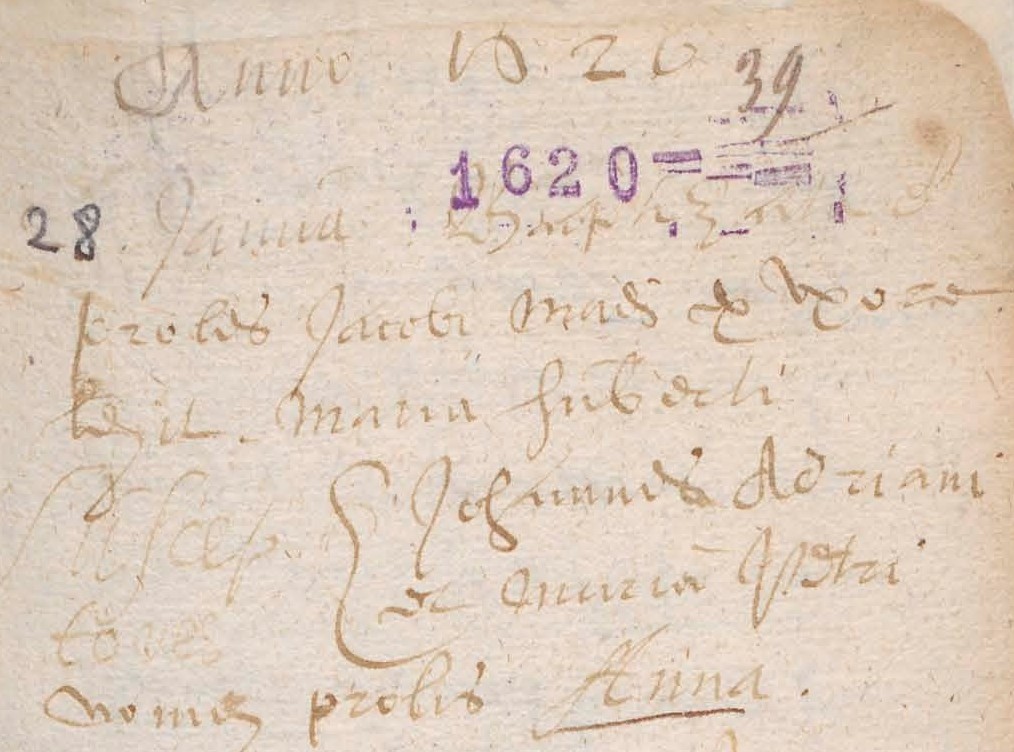 Anno 1620
39
1620
28 Januā Baptizata est
proles Jacobi Maes ex Uxore
legit. Maria Huberti
Suscep { Johannes Adriani
tores et Maria Petri
nomen prolis Anna.